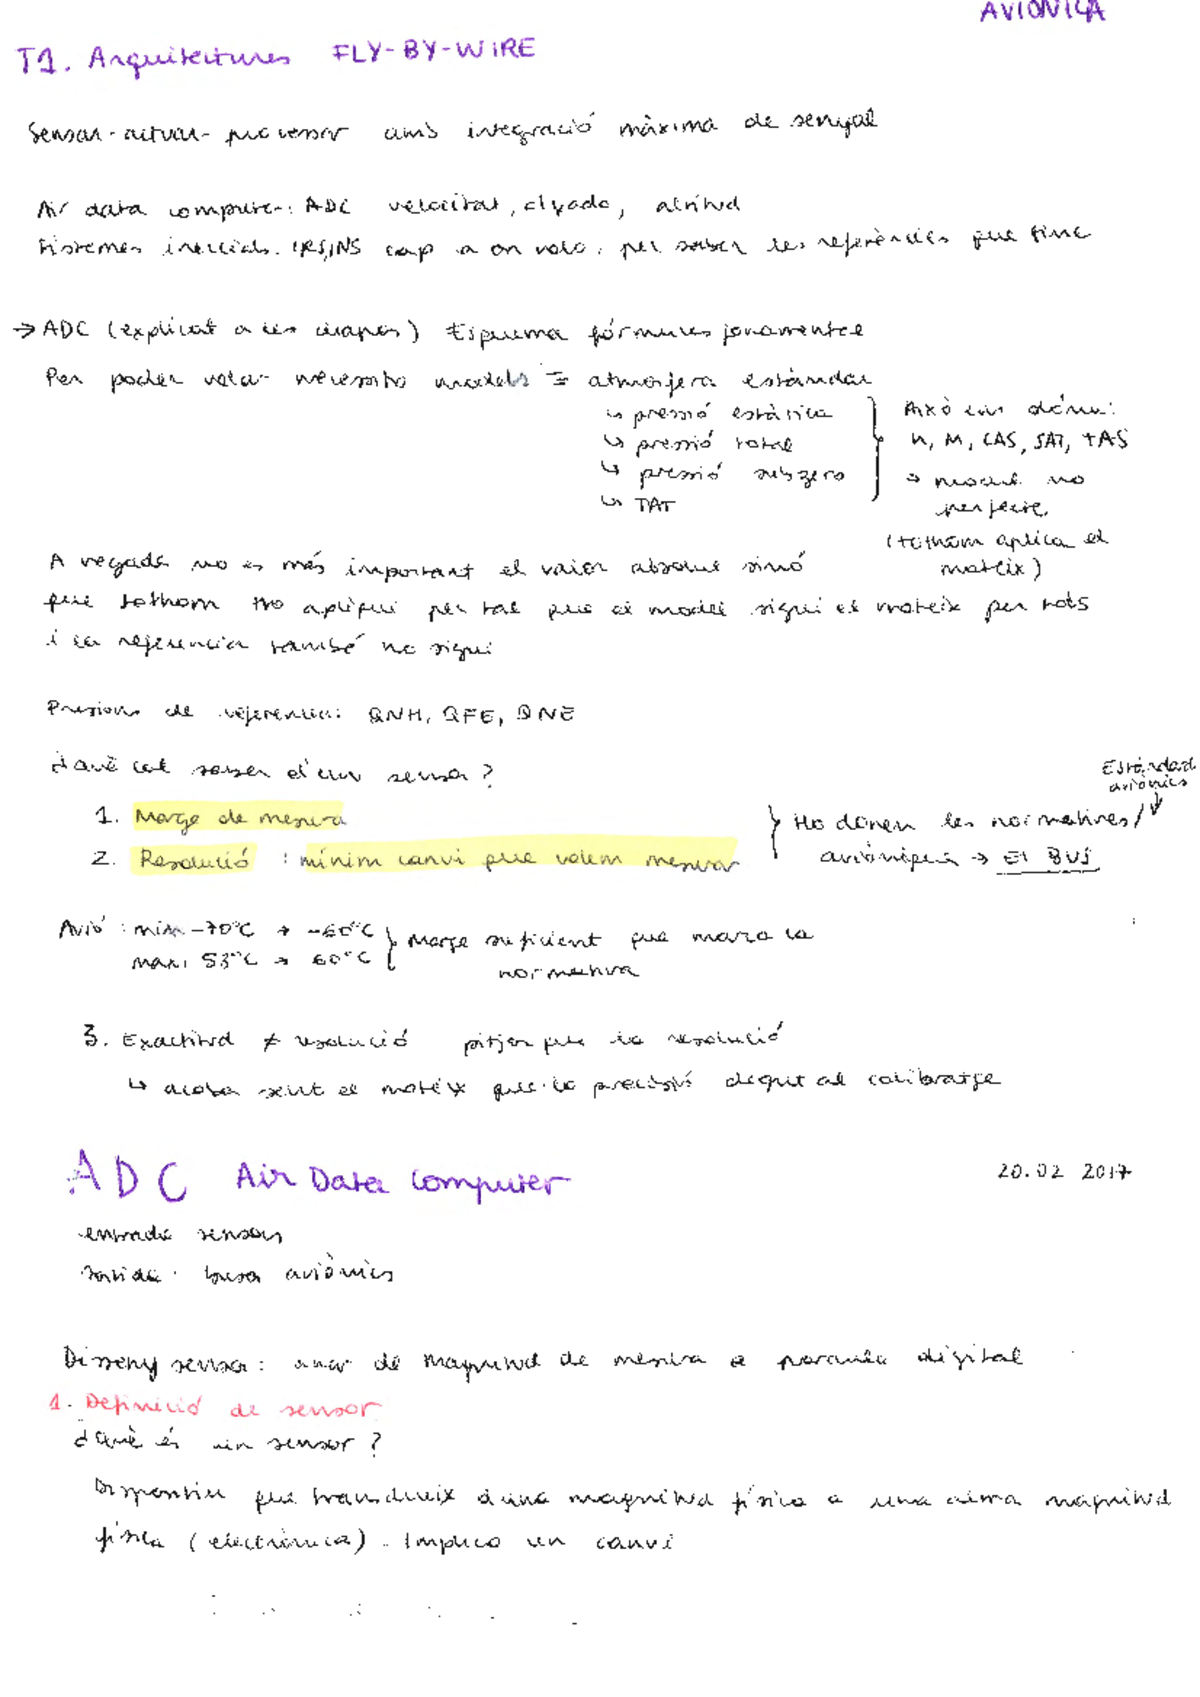 AVIONICA
T1. Arquitectures FLY-BY-WIRE
Sensor-actuar-processor amb integració màxima de senyal
Air data computer: ADC velocitat, alçada, altitud
Sistemes inercials. IRS, INS cap a on volo. per saber les referències que tinc
→ ADC (explicat a les diapos) Esquema fórmules fonamentals
Per poder volar necessito models = atmosfera estàndar
↳ pressió estàtica
↳ pressió total
↳ pressió subzero
↳ TAT
Això ens dóna:
h, M, CAS, SAT, TAS
→ model no
perfecte
(tothom aplica el
mateix)
A vegades no és més important el valor absolut sinó
que tothom ho apliqui per tal que el model sigui el mateix per tots
i la referencia també ho sigui
Presions de referencia: QNH, QFE, QNE
¿Què cal saber d'un sensor?
1. Marge de mesura
2. Resolució : mínim canvi que volem mesurar
Estàndard
aviònics
Ho donen les normatives/
aviònica → El BUS
Avió : min -70°C → -60°C
max: 53°C → 60°C
Marge suficient que marca la
normativa
3. Exactitud ≠ resolució pitjor que la resolució
↳ acaba sent el mateix que la precisió degut al calibratge
ADC Air Data Computer
20.02 2017
entrada sensors
sortida · busos aviònics
Disseny sensor: anar de magnitud de mesura a paraula digital
1. Definició de sensor
¿Què és un sensor?
Dispositiu que transdueix d'una magnitud física a una altra magnitud
física (electrònica). Implica un canvi